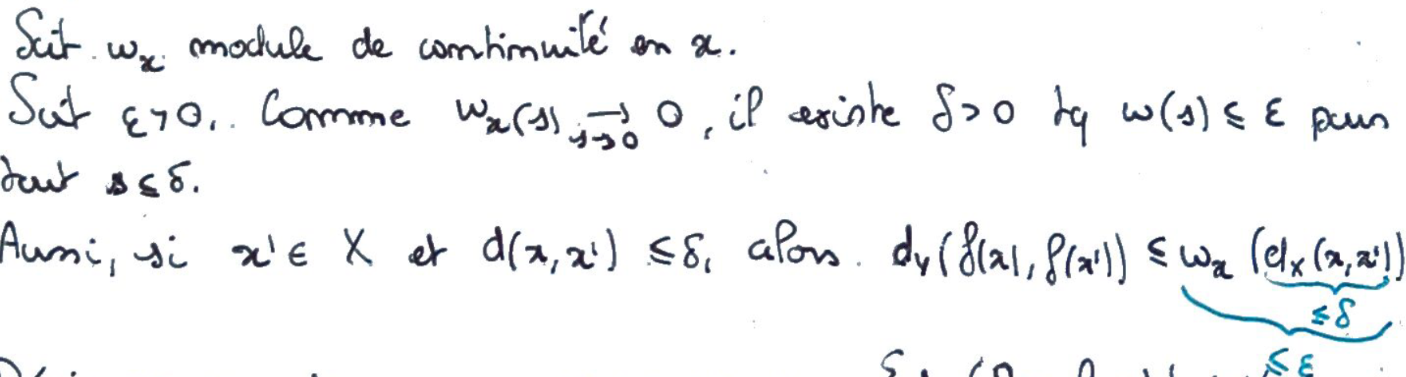 Soit ω_x module de continuité en x.
Soit ε>0. Comme ω_x(s) →_{s→0} 0, il existe δ>0 tq ω(s) ≤ ε pour
tout s ≤ δ.
Aussi, si x' ∈ X et d(x,x') ≤ δ, alors d_Y(f(x), f(x')) ≤ ω_x(d_X(x,x'))
≤δ
≤ε